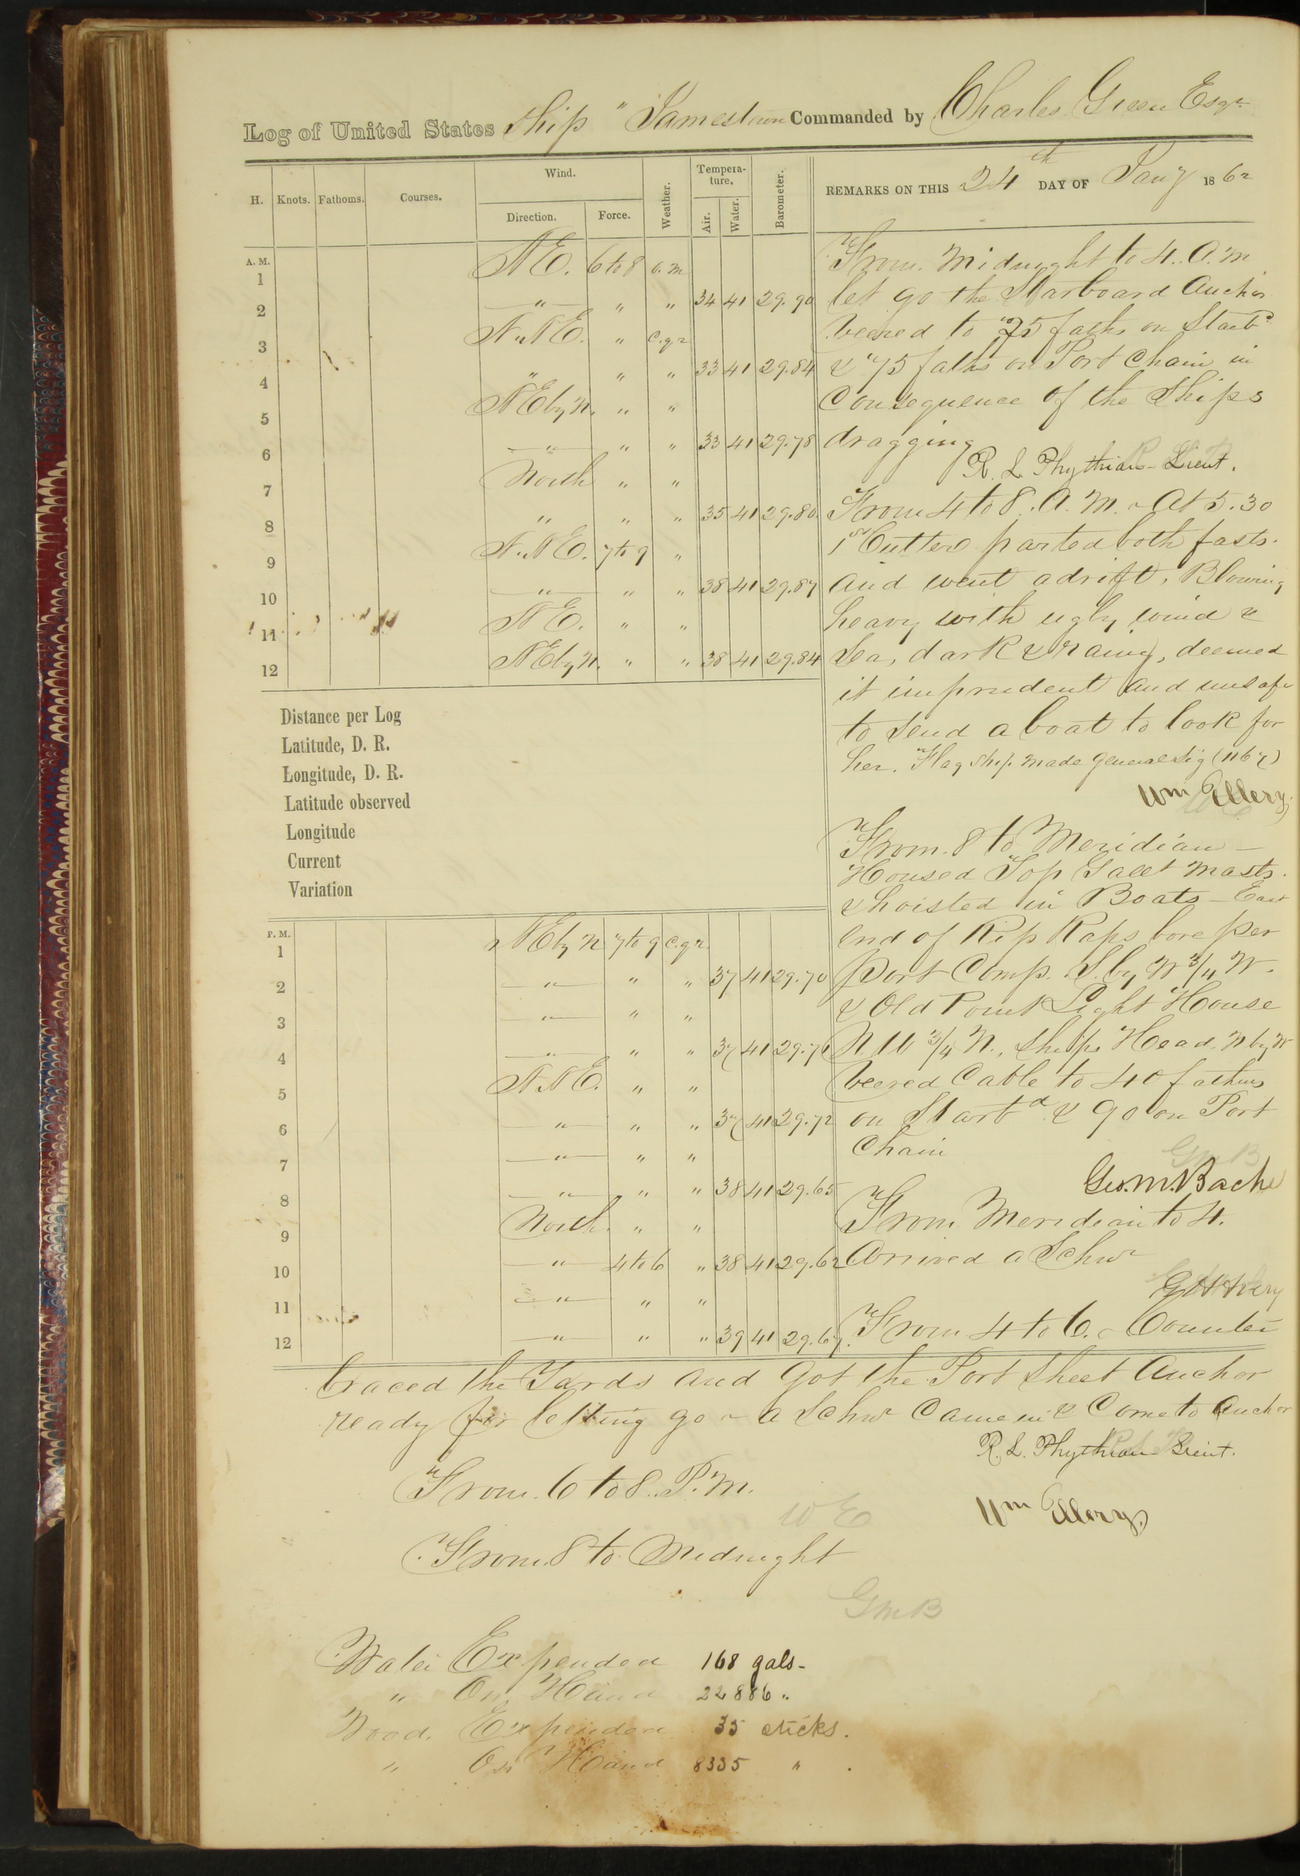 Log of United States Ship "Jamestown Commanded by Charles Green Esqr
H. Knots. Fathoms. Courses. Wind. Direction. Force. Weather. Tempera-ture. Air. Water. Barometer. REMARKS ON THIS 24th DAY OF Jany 1862
A. M.
1 N E. 6 to 8 o. m
2 —"— " " 34 41 29.90
3 N. N E. " c.q.r
4 " " " 33 41 29.84
5 N E by N. " "
6 —"— " " 33 41 29.78
7 North " "
8 " " " 35 41 29.80
9 N. N E. 7 to 9 "
10 —"— " " 38 41 29.87
11 N E. " "
12 N E by N. " " 38 41 29.84
From Midnight to 4. A. M
let go the Starboard Anchor
veered to 75 faths on Starbd
& 75 faths on Port Chain in
Consequence of the Ships
dragging
R. L Phythian Lieut.
From 4 to 8. A. M. - At 5.30
1st Cutter parted both fasts.
and went adrift. Blowing
heavy with ugly wind &
Sea, dark & rainy, deemed
it imprudent and unsafe
to send a boat to look for
her. Flag Ship made general sig (1167)
Wm Ellery.
From 8 to Meridian —
Housed Top Gallt Masts.
& hoisted in Boats — East
End of Rip Raps bore per
Port Comp. S. by W 3/4 W.
& Old Point Light House
N W 3/4 N., Ships Head N by W
Veered Cable to 40 fathms
on Starbd & 90 on Port
Chain
Geo. M. Bache
From Meridian to 4.
Arrived a Schr
From 4 to 6. - Counter
Distance per Log
Latitude, D. R.
Longitude, D. R.
Latitude observed
Longitude
Current
Variation
P. M.
1 N E by N 7 to 9 c.q.r.
2 —"— " " 37 41 29.70
3 —"— " "
4 —"— " " 37 41 29.76
5 N. N E. " "
6 —"— " " 37 41 29.72
7 —"— " "
8 —"— " " 38 41 29.65
9 North. " "
10 —"— 4 to 6 " 38 41 29.62
11 —"— " "
12 —"— " " 39 41 29.67.
braced the Yards and Got the Port Sheet Anchor
ready for letting go - a Schr Came in & Come to Anchor
R. L. Phythian Lieut.
From 6 to 8. P. M.
W E
Wm Ellery.
From 8 to Midnight
G M B
Water Expended 168 gals-
" On Hand 22886 "
Wood Expended 35 sticks.
" On Hand 8335 "